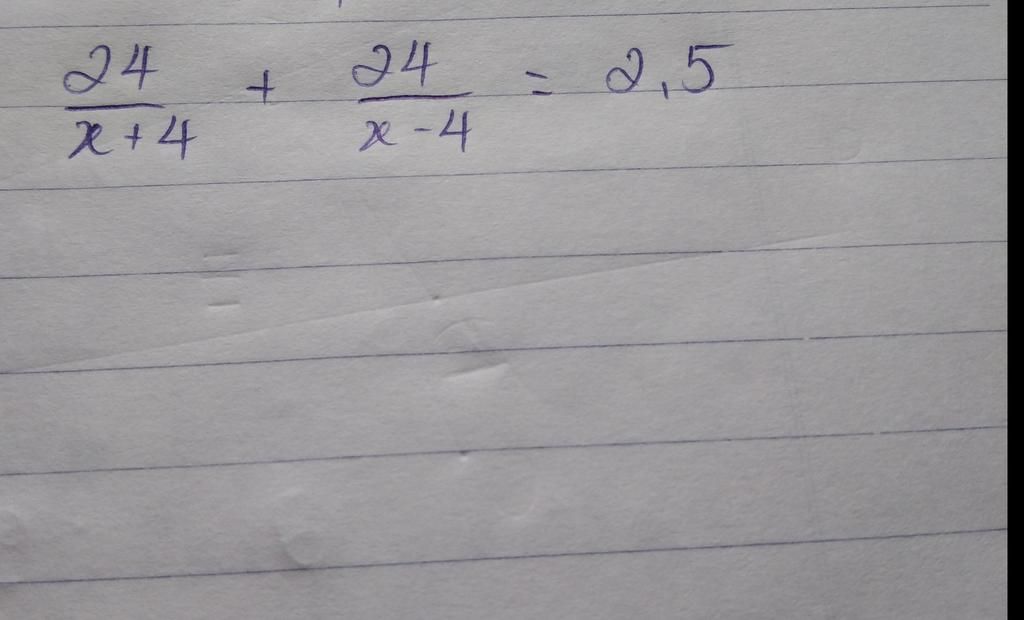 24/(x+4) + 24/(x-4) = 2,5